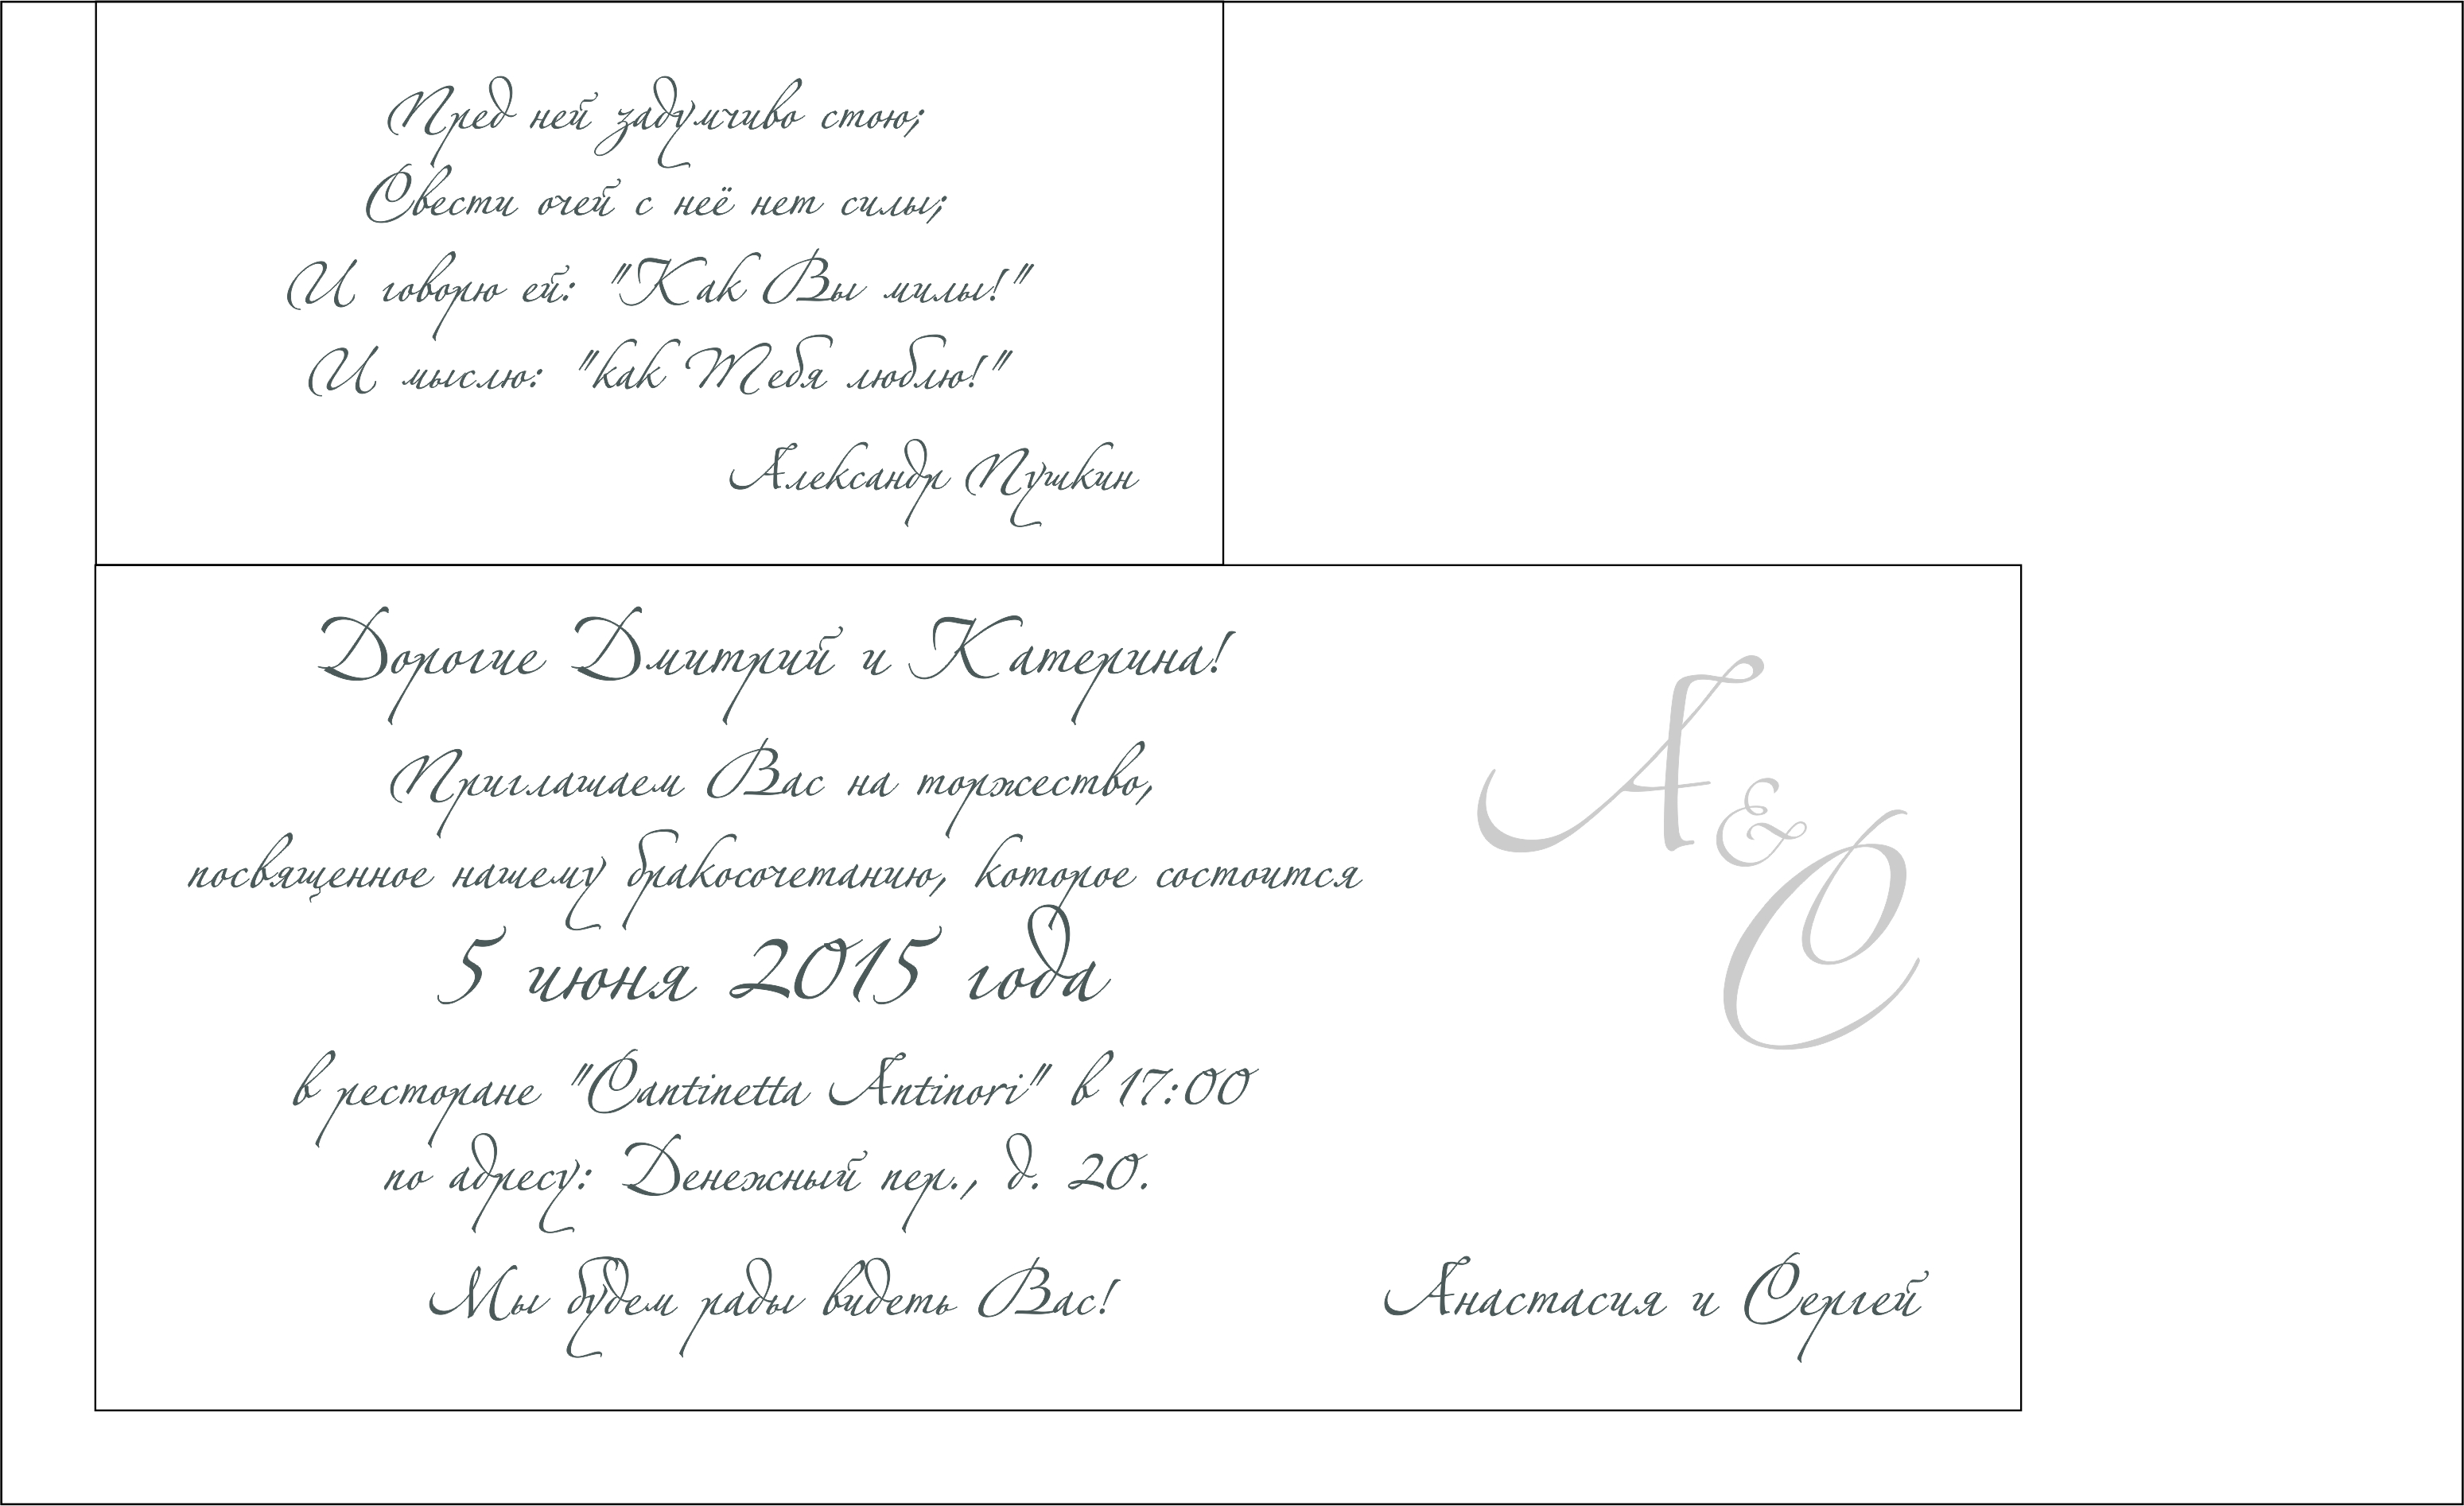 Пред ней задумчиво стою;
Свести очей с неё нет силы;
И говорю ей: "Как Вы милы!"
И мыслю: "как Тебя люблю!"
Александр Пушкин
Дорогие Дмитрий и Катерина!
Приглашаем Вас на торжество,
посвященное нашему бракосочетанию, которое состоится
5 июня 2015 года
в ресторане "Cantinetta Antinori" в 17:00
по адресу: Денежный пер., д. 20.
Мы будем рады видеть Вас!
А & С
Анастасия и Сергей